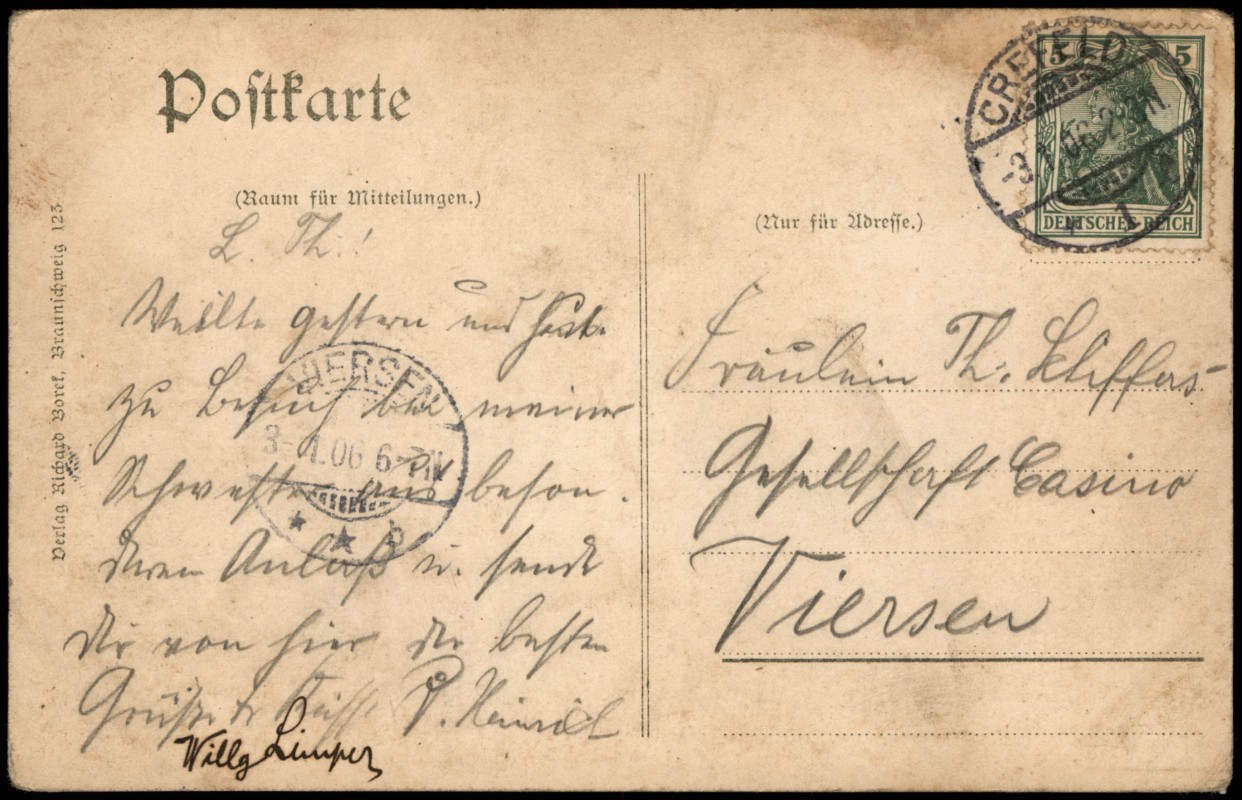 Postkarte
(Raum für Mitteilungen.)
L. Th.!
Weilte gestern und heute
zu Besuch bei meiner
Schwester aus beson-
deren Anlaß u. sende
dir von hier die besten
Grüße u. Küsse D. Heinrich
Willy Limper
Verlag Richard Borek, Braunschweig 123.
(Nur für Adresse.)
5 5
DEUTSCHES REICH
CREFELD
-3.1.06. 2-3N.
1
Fräulein Th. Schiffers
Gesellschaft Casino
Viersen
VIERSEN
3-1.06 6-7N